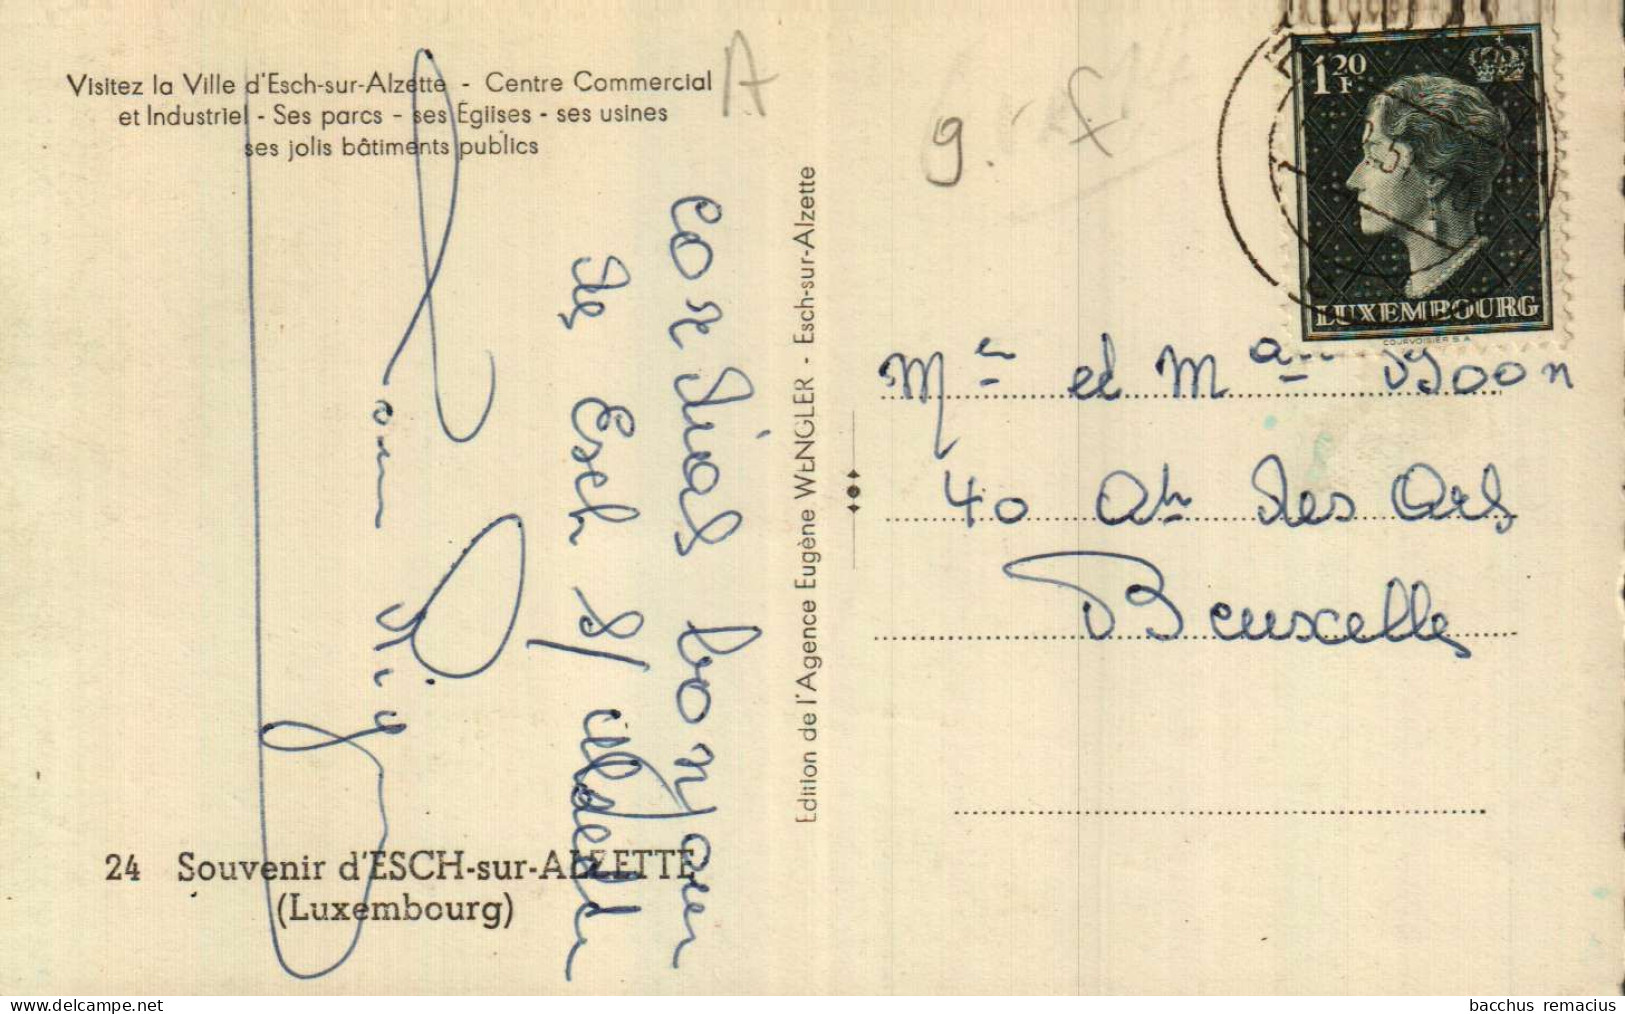 Visitez la Ville d'Esch-sur-Alzette - Centre Commercial
et Industriel - Ses parcs - ses Eglises - ses usines
ses jolis bâtiments publics
A
g. f
1 20 F
LUXEMBOURG
COURVOISIER S.A.
cordial bonjour
de Esch s/ Alzette
Edition de l'Agence Eugène WENGLER - Esch-sur-Alzette
Mr et Mam
40 des Arts
Bruxelles
24 Souvenir d'ESCH-sur-ALZETTE
(Luxembourg)
bacchus remacius